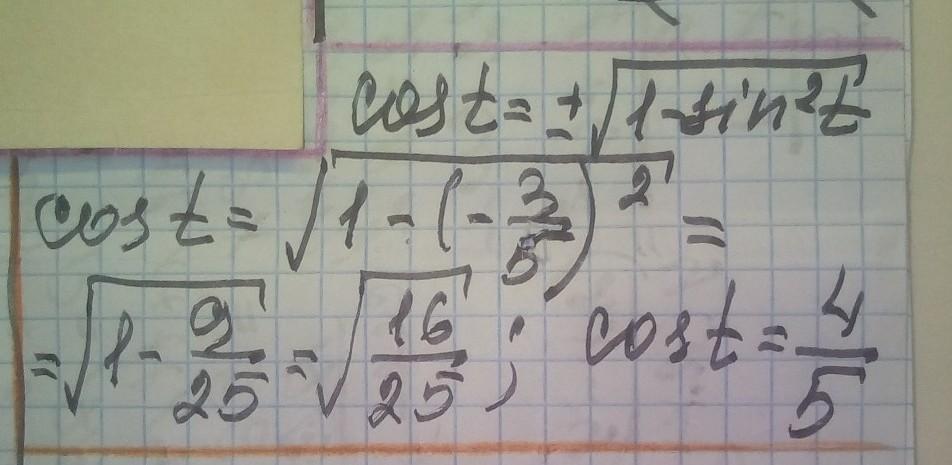 cos t = ±√(1-sin²t)
cos t = √(1-(-3/5)²) =
= √(1-9/25) = √(16/25); cos t = 4/5